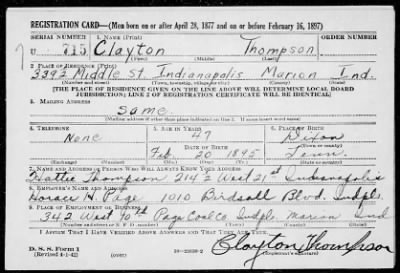 REGISTRATION CARD—(Men born on or after April 28, 1877 and on or before February 16, 1897)
SERIAL NUMBER 1. NAME (Print) ORDER NUMBER
U 715 Clayton Thompson
(First) (Middle) (Last)
2. PLACE OF RESIDENCE (Print)
3392 Middle St. Indianapolis Marion Ind.
(Number and street) (Town, township, village, or city) (County) (State)
[THE PLACE OF RESIDENCE GIVEN ON THE LINE ABOVE WILL DETERMINE LOCAL BOARD
JURISDICTION; LINE 2 OF REGISTRATION CERTIFICATE WILL BE IDENTICAL]
3. MAILING ADDRESS
Same
[Mailing address if other than place indicated on line 2. If same insert word same]
4. TELEPHONE 5. AGE IN YEARS 6. PLACE OF BIRTH
None 47 Dixon
DATE OF BIRTH (Town or county)
Feb 20 1895 Tenn.
(Exchange) (Number) (Mo.) (Day) (Yr.) (State or country)
7. NAME AND ADDRESS OF PERSON WHO WILL ALWAYS KNOW YOUR ADDRESS
Hattie Thompson 2142 West 21st Indianapolis
8. EMPLOYER'S NAME AND ADDRESS
Horace H. Page 1010 Birdsall Blvd. Indpls.
9. PLACE OF EMPLOYMENT OR BUSINESS
342 West 40th Page Coal Co. Indpls. Marion Ind
(Number and street or R. F. D. number) (Town) (County) (State)
I AFFIRM THAT I HAVE VERIFIED ABOVE ANSWERS AND THAT THEY ARE TRUE.
D. S. S. Form 1
(Revised 4-1-42) Clayton Thompson
(Registrant's signature)